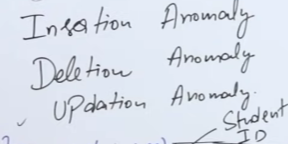 Insertion Anomaly
Deletion Anomaly
Updation Anomaly.
Student
ID